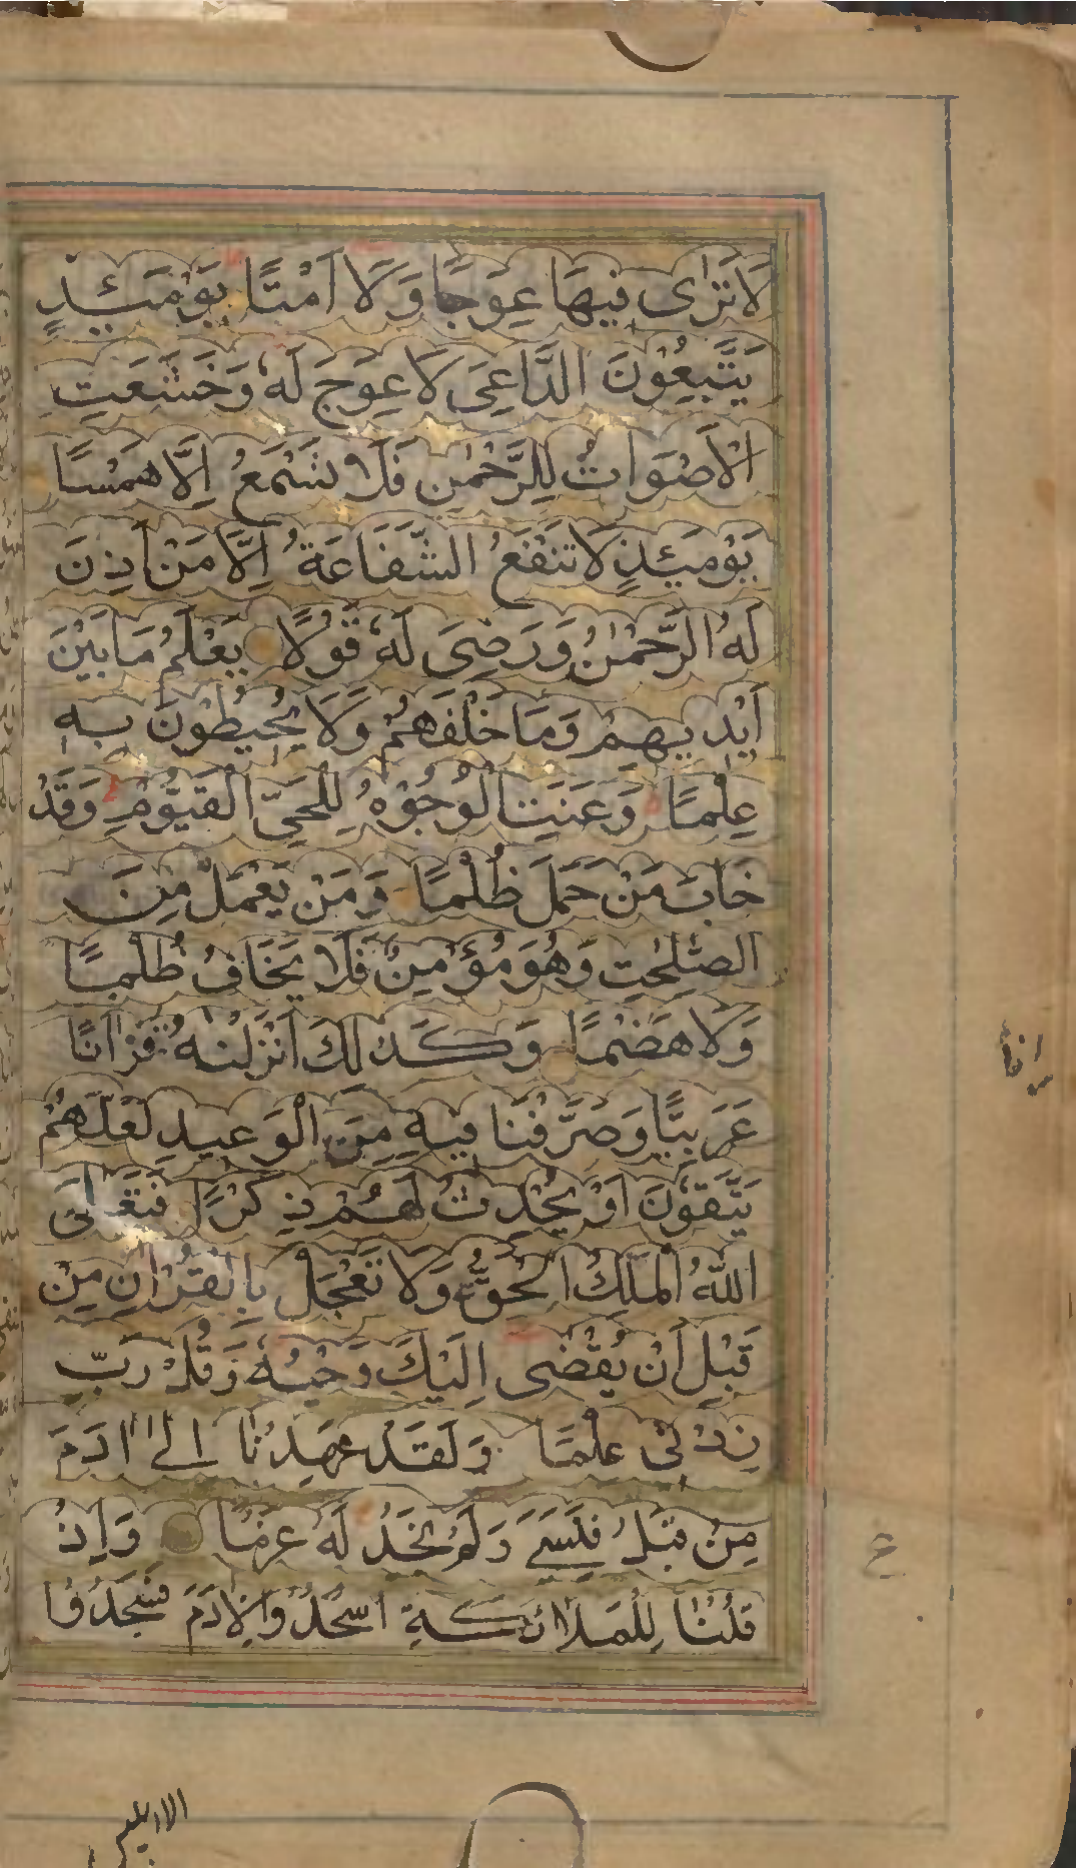 لَا تَرٰى فِيهَا عِوَجًا وَلَا اَمْتًا يَوْمَئِذٍ
يَتَّبِعُوْنَ الدَّاعِىَ لَا عِوَجَ لَهٗ وَخَشَعَتِ
الْاَصْوَاتُ لِلرَّحْمٰنِ فَلَا تَسْمَعُ اِلَّا هَمْسًا
يَوْمَئِذٍ لَا تَنْفَعُ الشَّفَاعَةُ اِلَّا مَنْ اَذِنَ
لَهُ الرَّحْمٰنُ وَرَضِىَ لَهٗ قَوْلًا يَعْلَمُ مَا بَيْنَ
اَيْدِيهِمْ وَمَا خَلْفَهُمْ وَلَا يُحِيْطُوْنَ بِهٖ
عِلْمًا وَعَنَتِ الْوُجُوْهُ لِلْحَىِّ الْقَيُّوْمِ وَقَدْ
خَابَ مَنْ حَمَلَ ظُلْمًا وَمَنْ يَعْمَلْ مِنَ
الصّٰلِحٰتِ وَهُوَ مُؤْمِنٌ فَلَا يَخَافُ ظُلْمًا
وَلَا هَضْمًا وَكَذٰلِكَ اَنْزَلْنٰهُ قُرْاٰنًا
عَرَبِيًّا وَصَرَّفْنَا فِيهِ مِنَ الْوَعِيدِ لَعَلَّهُمْ
يَتَّقُوْنَ اَوْ يُحْدِثُ لَهُمْ ذِكْرًا فَتَعٰلَى
اللّٰهُ الْمَلِكُ الْحَقُّ وَلَا تَعْجَلْ بِالْقُرْاٰنِ مِنْ
قَبْلِ اَنْ يُقْضٰى اِلَيْكَ وَحْيُهٗ وَقُلْ رَبِّ
زِدْنِى عِلْمًا وَلَقَدْ عَهِدْنَا اِلٰى اٰدَمَ
مِنْ قَبْلُ فَنَسِىَ وَلَمْ نَجِدْ لَهٗ عَزْمًا وَاِذْ
قُلْنَا لِلْمَلٰئِكَةِ اسْجُدُوْا لِاٰدَمَ فَسَجَدُوْا
الا ابليس